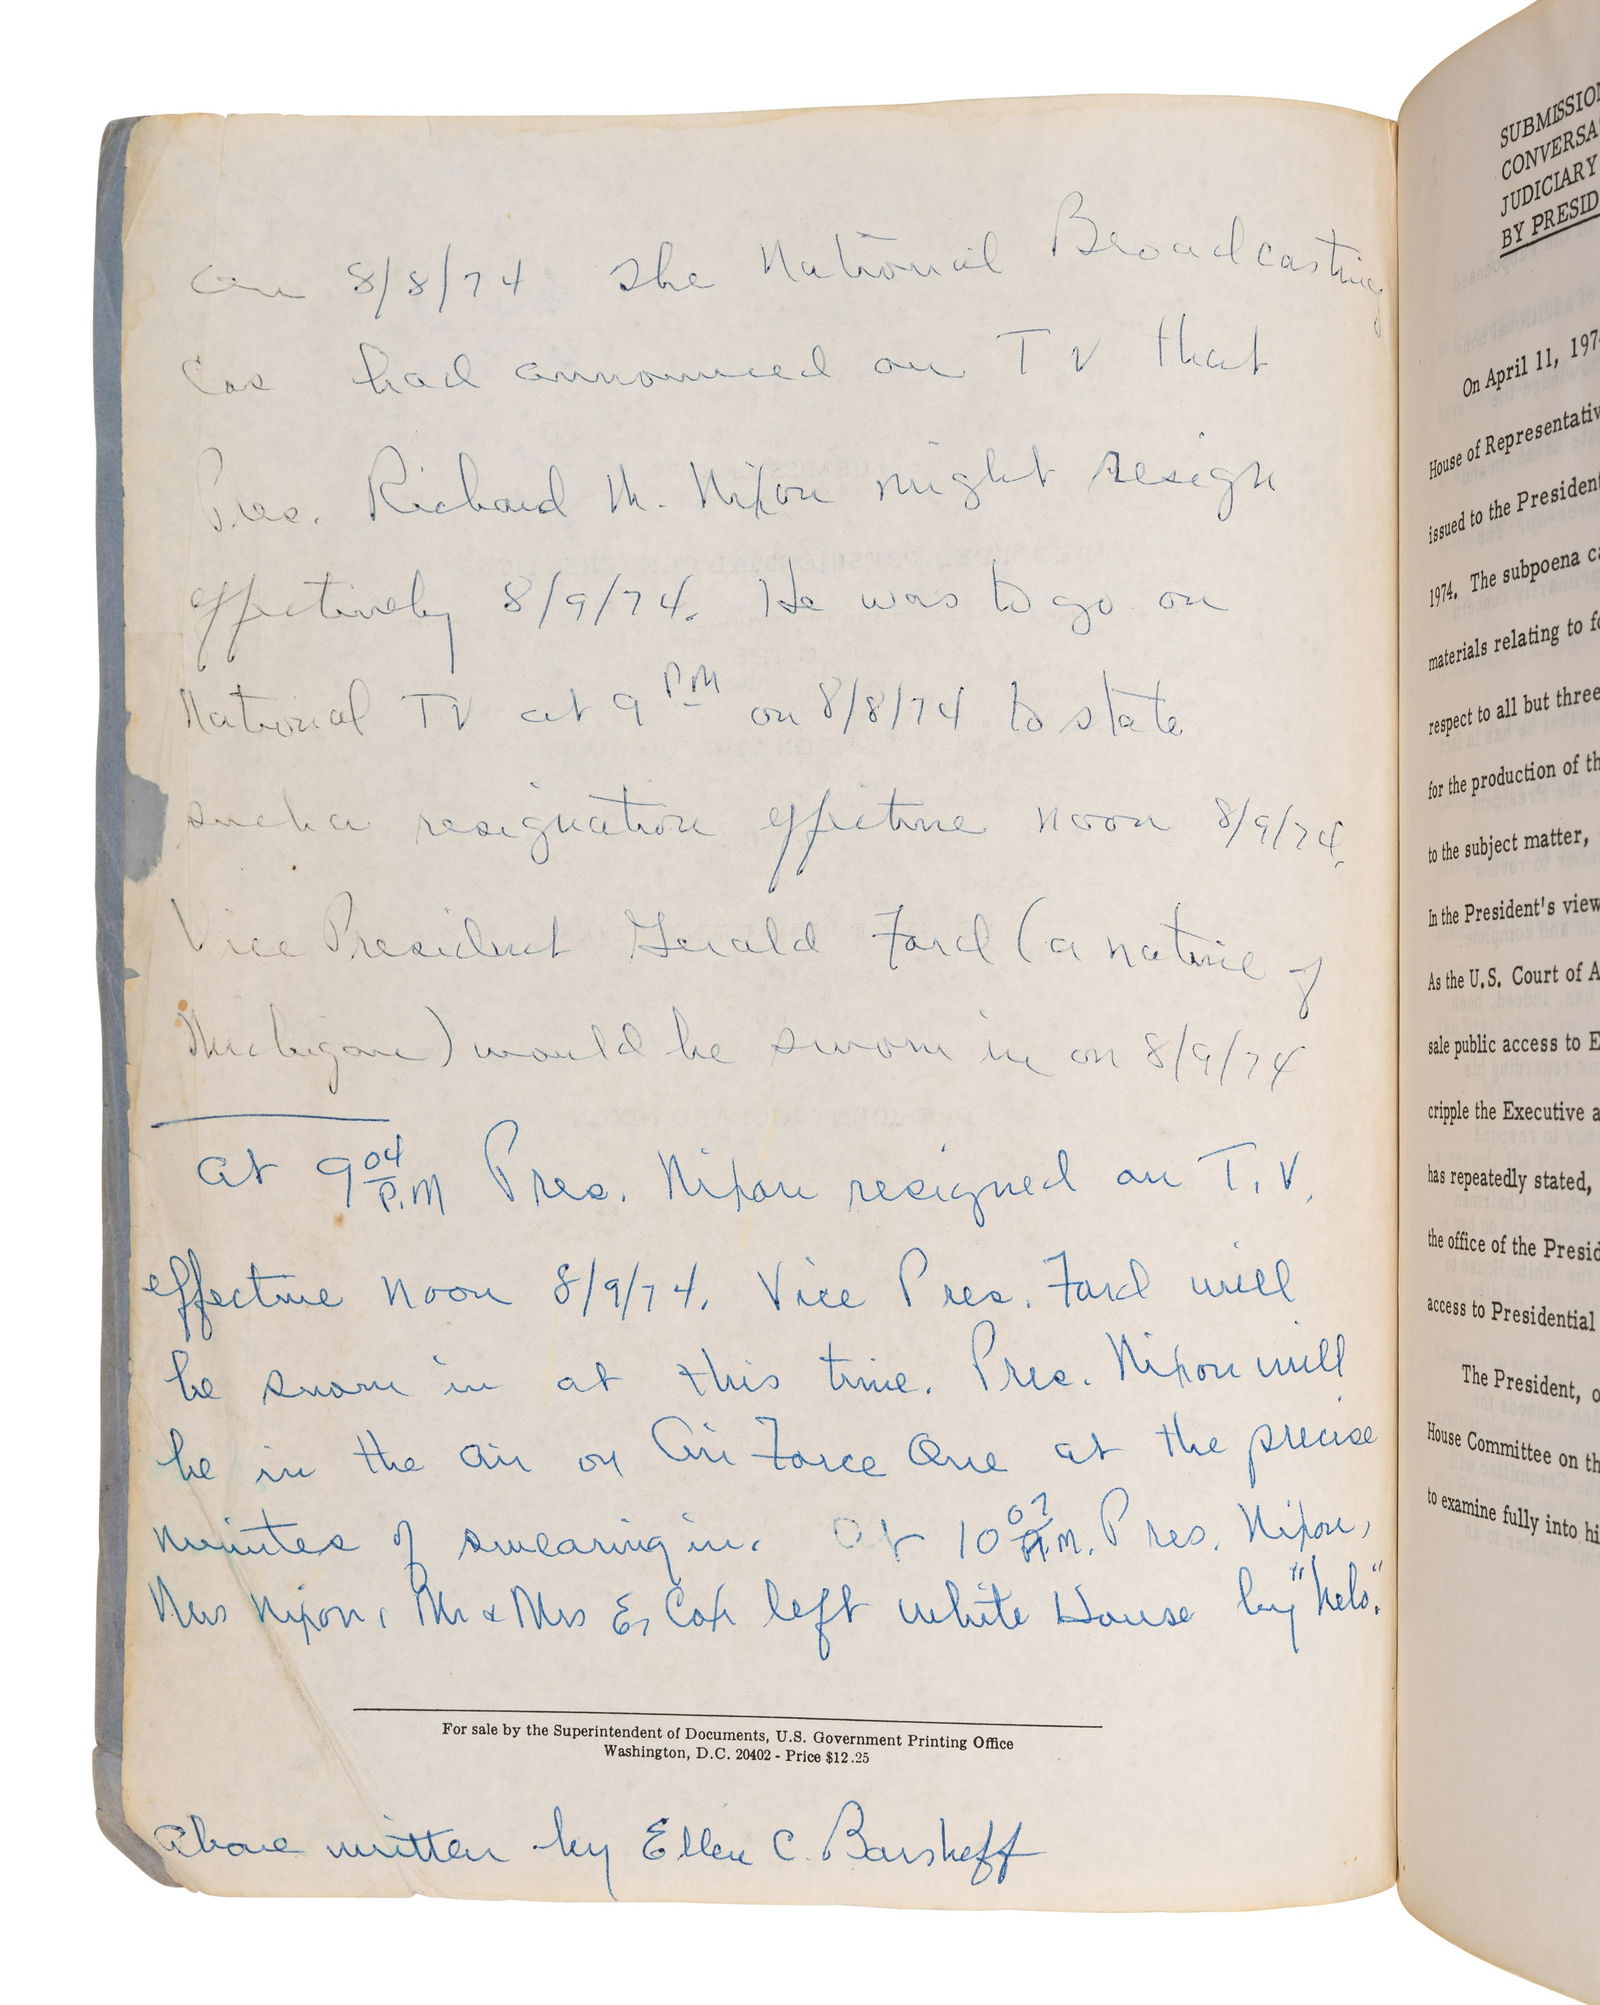 On 8/8/74 The National Broadcasting
Cos had announced on TV that
Pres. Richard M. Nixon might resign
effectively 8/9/74. He was to go on
National TV at 9 PM on 8/8/74 to state
such a resignation effective noon 8/9/74.
Vice President Gerald Ford (a native of
Michigan) would be sworn in on 8/9/74
At 9 04 P.M Pres. Nixon resigned on T.V.
effective noon 8/9/74. Vice Pres. Ford will
be sworn in at this time. Pres. Nixon will
be in the air on Air Force One at the precise
minutes of swearing in. At 10 07 A.M. Pres. Nixon,
Mrs Nixon, Mr & Mrs E. Cox left White House by "helo".
For sale by the Superintendent of Documents, U.S. Government Printing Office
Washington, D.C. 20402 - Price $12.25
Above written by Ellen C. Barsheff
SUBMISSION
CONVERSA
JUDICIARY
BY PRESID
On April 11, 197
House of Representativ
issued to the President
1974. The subpoena ca
materials relating to fo
respect to all but three
for the production of th
to the subject matter,
In the President's view
As the U.S. Court of A
sale public access to E
cripple the Executive a
has repeatedly stated,
the office of the Presid
access to Presidential
The President, o
House Committee on th
to examine fully into hi